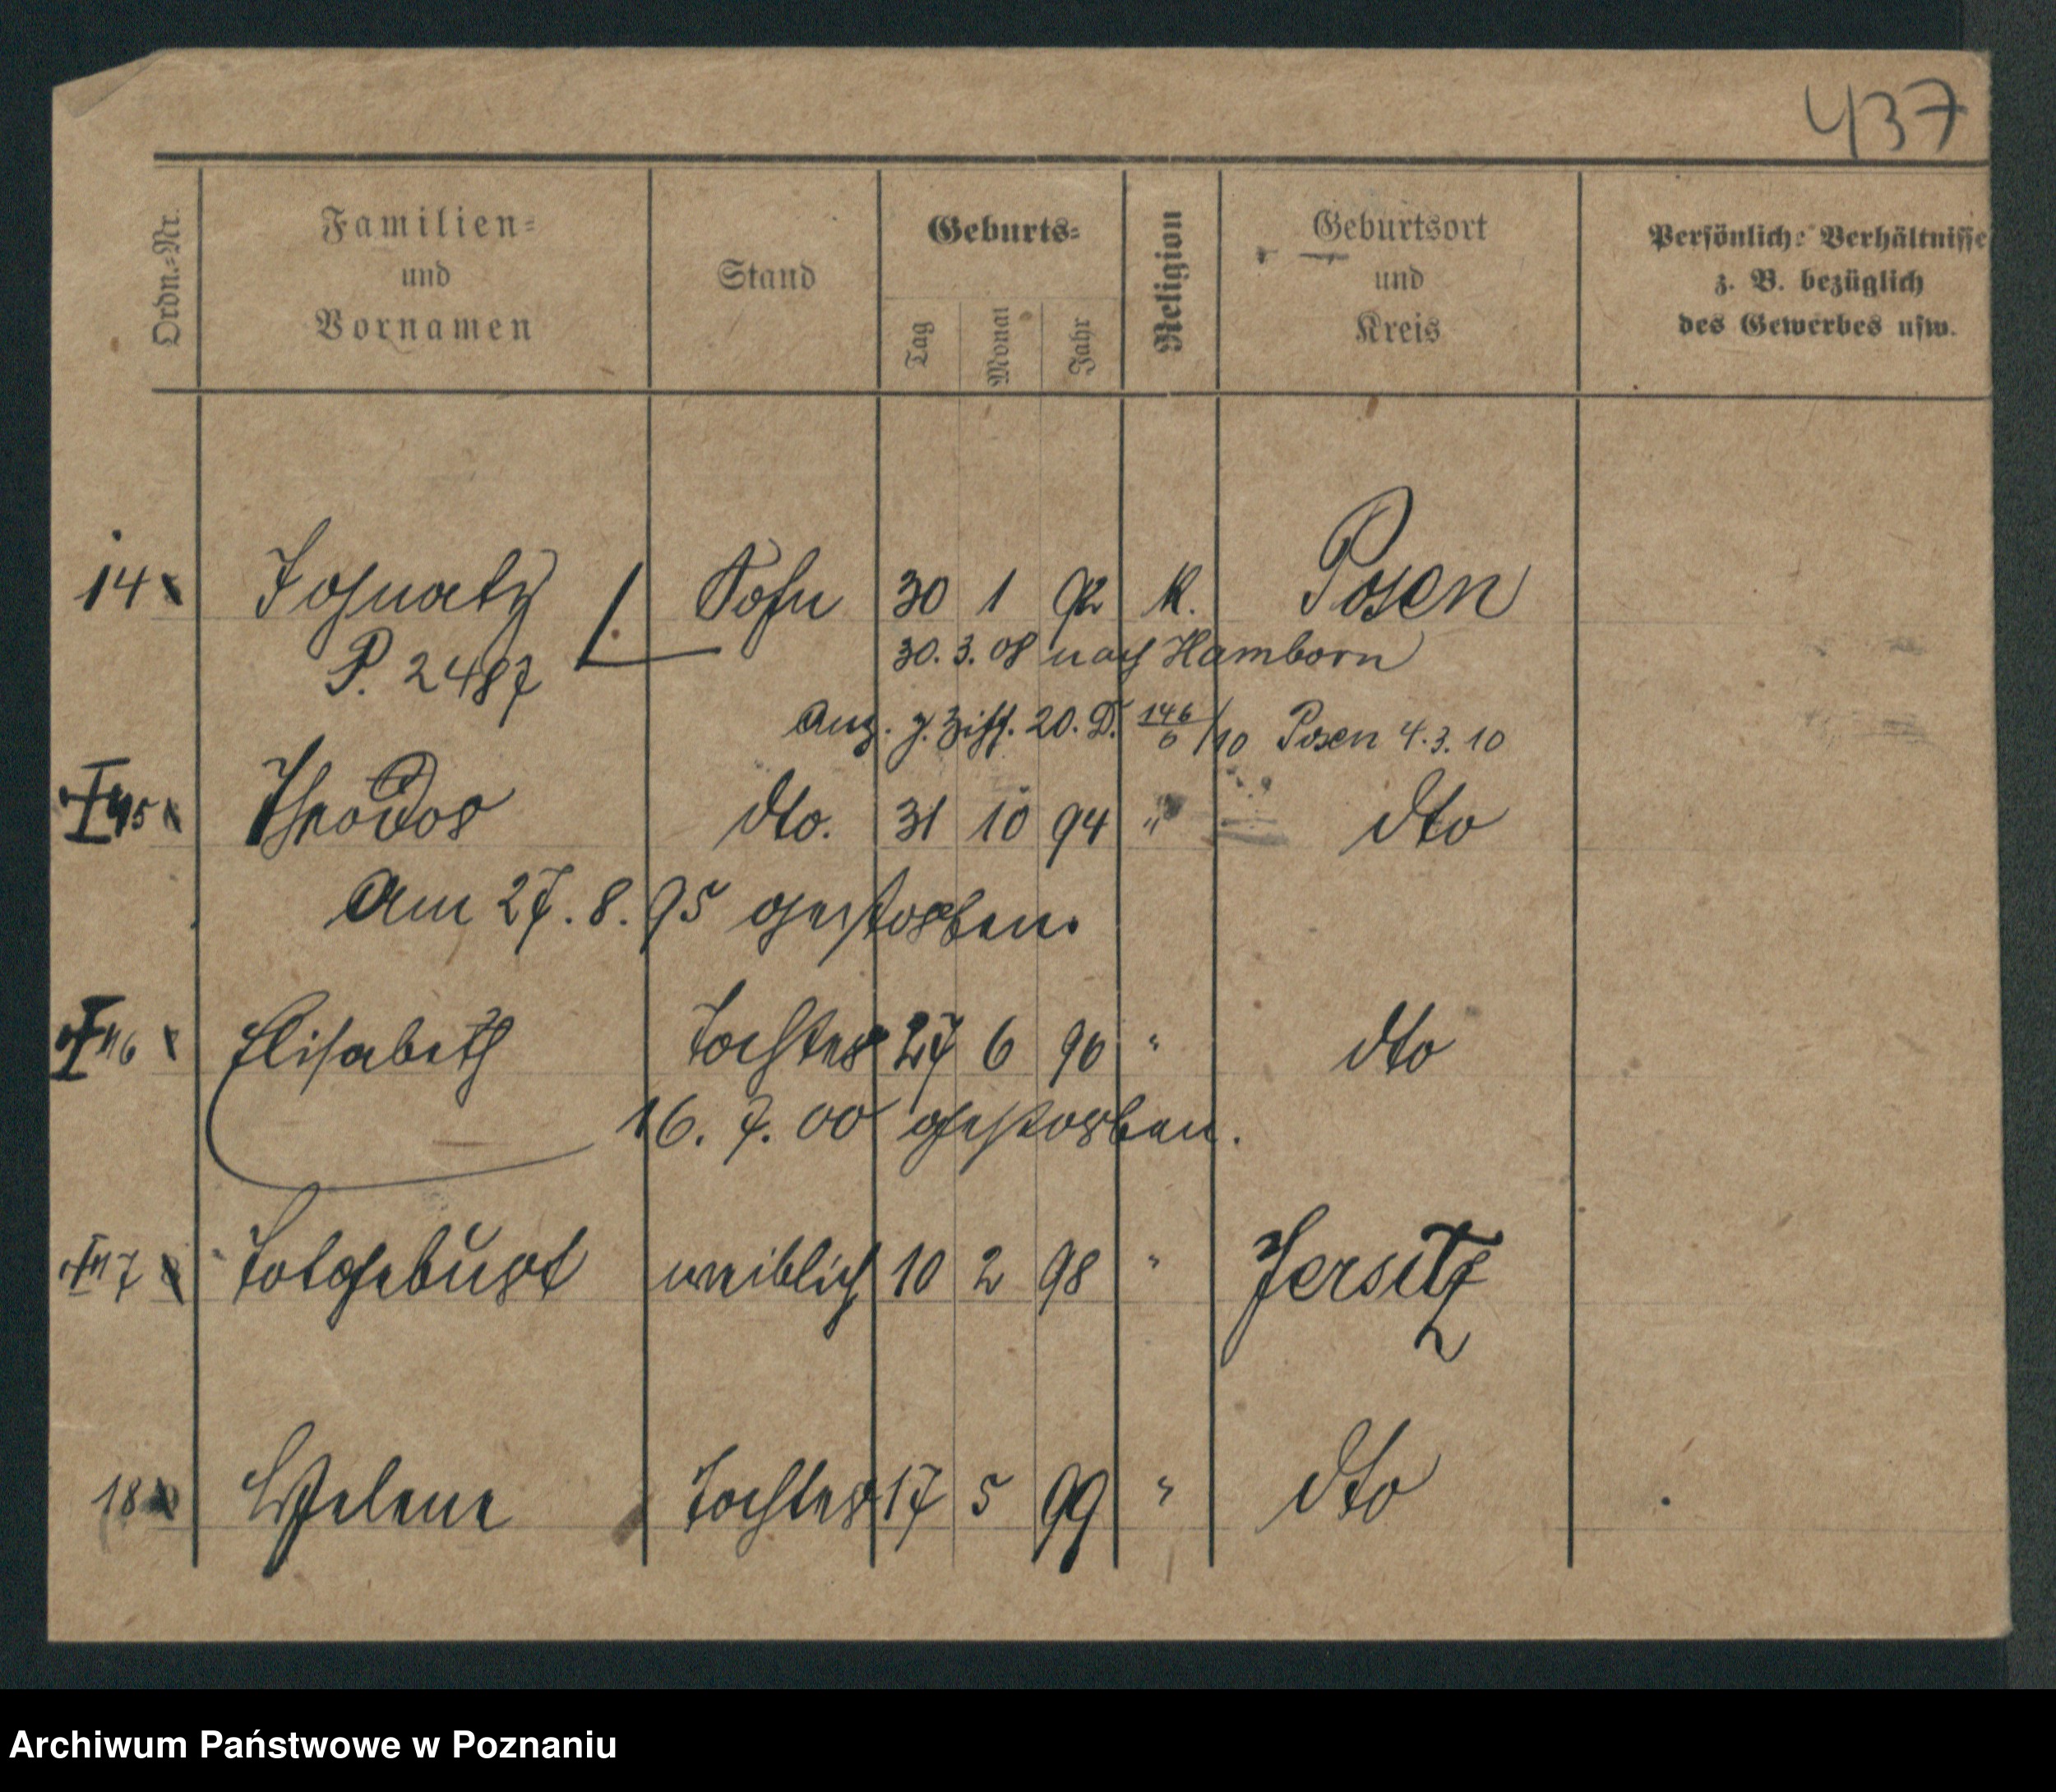 437
Ordn.-Nr.
Familien-
und
Vornamen
Stand
Geburts-
Tag
Monat
Jahr
Religion
Geburtsort
und
Kreis
Persönliche Verhältnisse
z. B. bezüglich
des Gewerbes usw.
14 Ignatz Sohn 30 1 92 K. Posen
P. 2487 30. 3. 08 nach Hamborn
20. D. 146/6/10 Posen 4. 3. 10
15 Theodor dto. 31 10 94 " dto
Am 27. 8. 95 gestorben.
16 Elisabeth Tochter 27 6 96 " dto
16. 7. 00 gestorben.
17 Totgeburt weiblich 10 2 98 " Jersitz
18 Helene Tochter 17 5 99 " dto
Archiwum Państwowe w Poznaniu